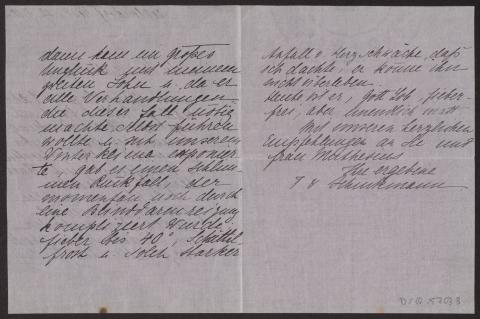 dann kam ein großes
Unglück mit meinem
zweiten Sohn u. da er
alle Verhandlungen
die dieser Fall nötig
machte selbst führen
wollte u. mit unserem
Winterkeima exponier-
te, gab es einen schlim-
men Rückfall, der
momentan noch durch
eine Blinddarmreizung
kompliziert wurde
Fieber bis 40°, Schüttel-
frost u. solch starker
Anfall v. Herzschwäche, daß
ich dachte, er könne ihn
nicht überleben.
Heute ist er, Gott Lob, fieber-
frei, aber unendlich matt
Mit unseren herzlichen
Empfehlungen an Sie und
Frau Mathesius
Ihr ergebene
v Schuckmann